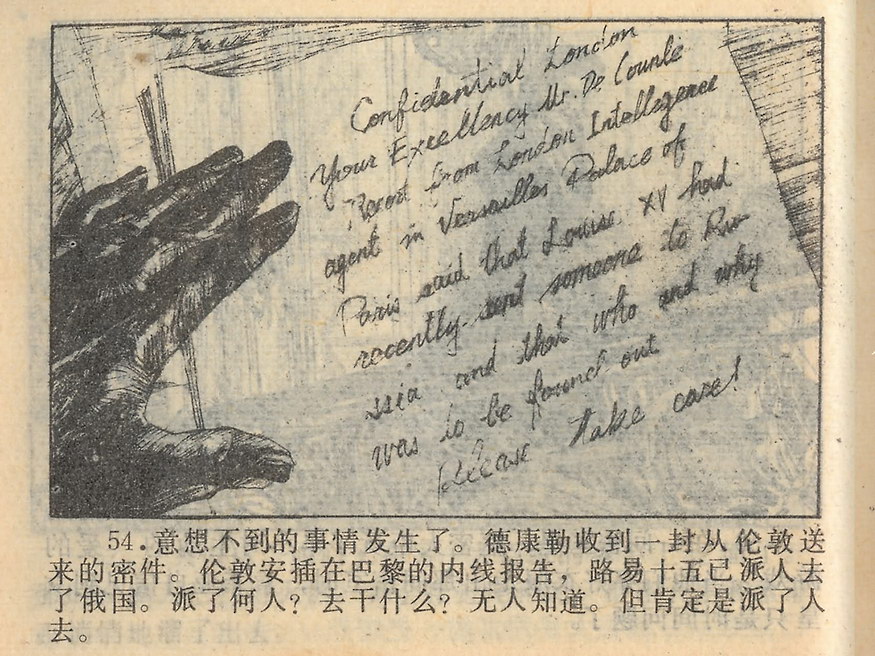 Confidential London
Your Excellency Mr. De Counle
Report from London Intellegence
agent in Versailles Palace of
Paris said that Louise XV had
recently sent someone to Ru-
ssia and that who and why
was to be found out
Please take care!
54.意想不到的事情发生了。德康勒收到一封从伦敦送
来的密件。伦敦安插在巴黎的内线报告，路易十五已派人去
了俄国。派了何人？去干什么？无人知道。但肯定是派了人
去。